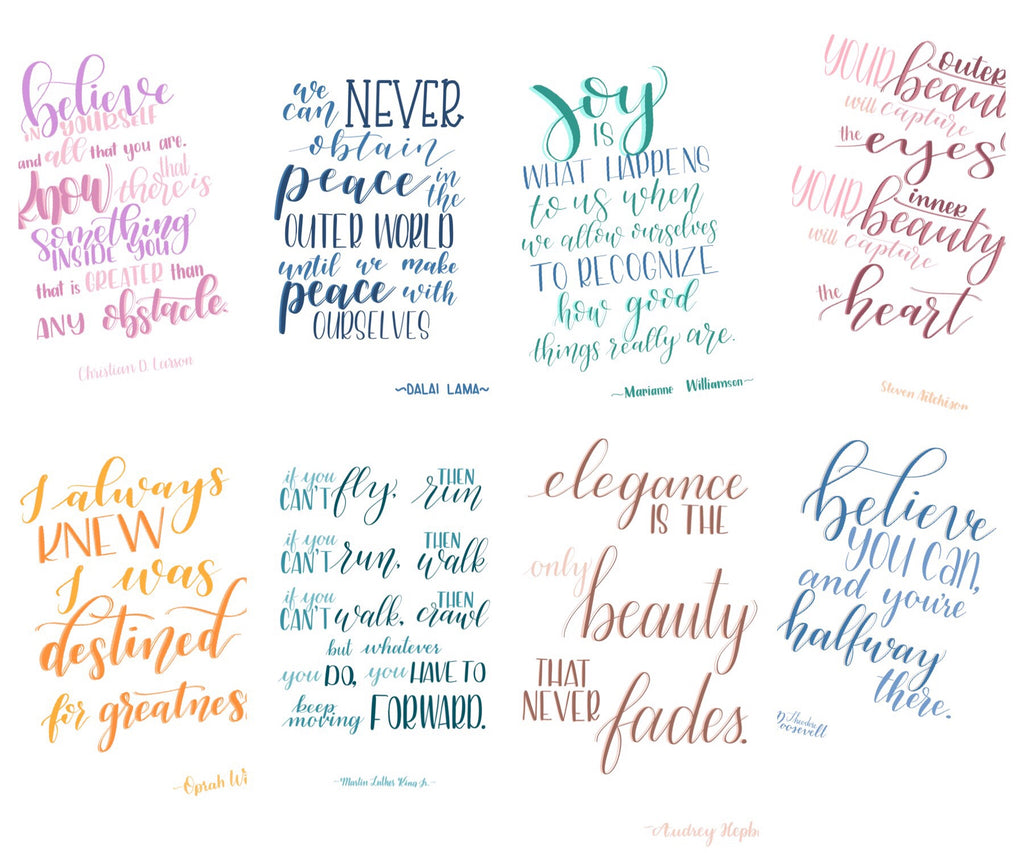 believe
IN YOURSELF
and all that you are.
Know that there is
something
INSIDE YOU
that is GREATER than
ANY obstacle.
Christian D. Larson
we can NEVER
obtain
peace in the
OUTER WORLD
until we make
peace with
OURSELVES
~DALAI LAMA~
Joy
IS
WHAT HAPPENS
to us when
we allow ourselves
TO RECOGNIZE
how good
things really are.
~Marianne Williamson~
YOUR outer
beaut
will capture
the eyes
YOUR inner
beauty
will capture
the heart
Steven Aitchison
I always
KNEW
I was
destined
for greatnes
~Oprah Wi
if you CAN'T fly, THEN run
if you CAN'T run, THEN walk
if you CAN'T walk, THEN crawl
but whatever
you DO, you HAVE TO
keep moving FORWARD.
~Martin Luther King Jr.~
elegance
IS THE
only
beauty
THAT NEVER
fades.
~Audrey Hepb
believe
YOU CAN,
and you're
halfway
there.
Theodore
Roosevelt